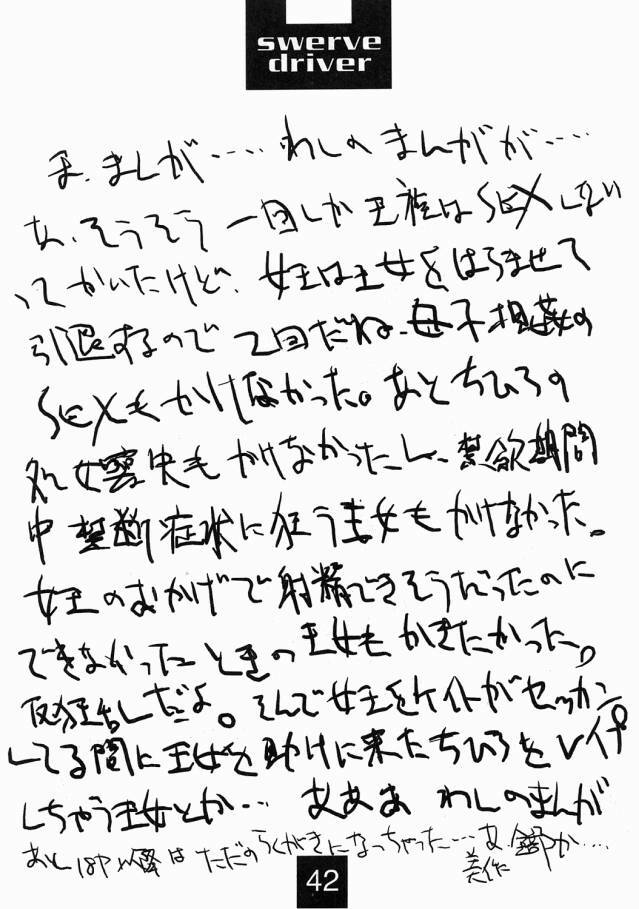 swerve
driver
ま、まんが‥‥わしのまんがが‥‥
あ、そうそう一回しか王族はSEXしない
ってかいたけど、女王は王女をはらませて
引退するので2回だね、母子相姦の
SEXもかけなかった。あとちひろの
処女喪失もかけなかったし、禁欲期間
中禁断症状に狂う王女もかけなかった。
女王のおかげで射精できそうだったのに
できなかったときの王女もかきたかった。
半狂乱だよ。そんで女王をケイトがセッカン
してる間に王女を助けに来たちひろをレイプ
しちゃう王女とか… あああ わしのまんが
あと18P以降はただのらくがきになっちゃった…あ
42